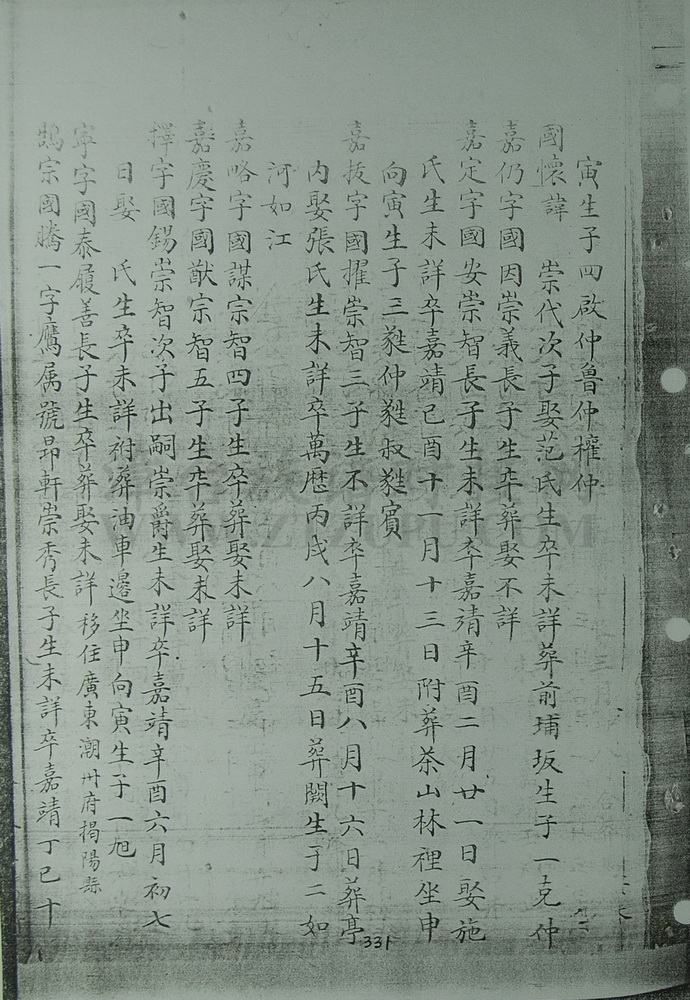 寅生子四啟仲魯仲權仲
國懷諱　崇代次子娶范氏生卒未詳葬前埔坂生子一克仲
嘉仍字國因崇義長子生卒葬娶不詳
嘉定字國安崇智長子生未詳卒嘉靖辛酉二月廿一日娶施
氏生未詳卒嘉靖己酉十一月十三日附葬茶山林裡坐申
向寅生子三蕤仲蕤叔蕤賓
嘉拔字國擢崇智三子生不詳卒嘉靖辛酉八月十六日葬亭
內娶張氏生未詳卒萬曆丙戌八月十五日葬闕生子二如
河如江
嘉略字國謀宗智四子生卒葬娶未詳
嘉慶字國猷宗智五子生卒葬娶未詳
擇字國錫崇智次子出嗣崇爵生未詳卒嘉靖辛酉六月初七
日娶　氏生卒未詳祔葬油車邊坐申向寅生子一旭
寧字國泰履善長子生卒葬娶未詳移住廣東潮州府揭陽縣
鵠宗國騰一字鷹屬號昂軒崇秀長子生未詳卒嘉靖丁巳十
331